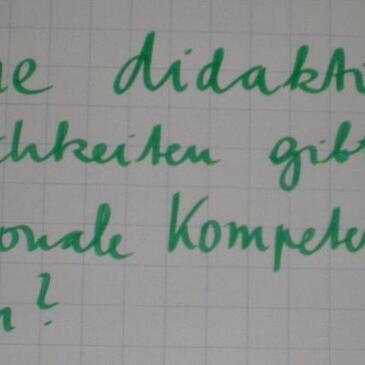 ne didakti
chkeiten gibt
onale Kompete
n?